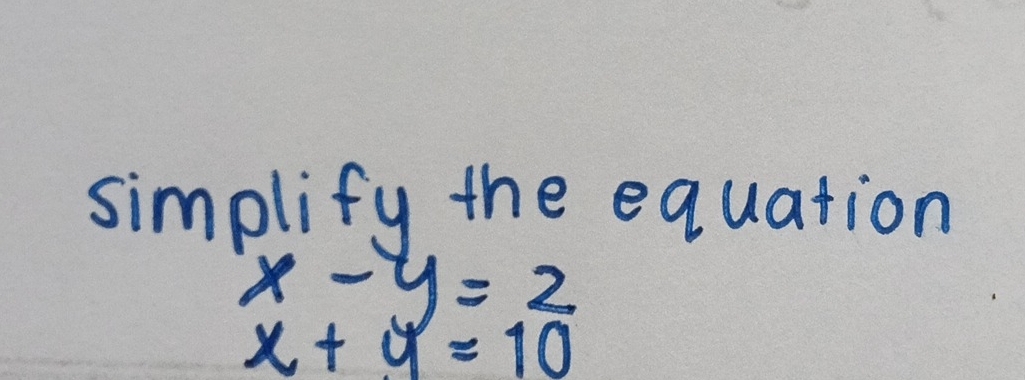 simplify the equation
x - y = 2
x + y = 10